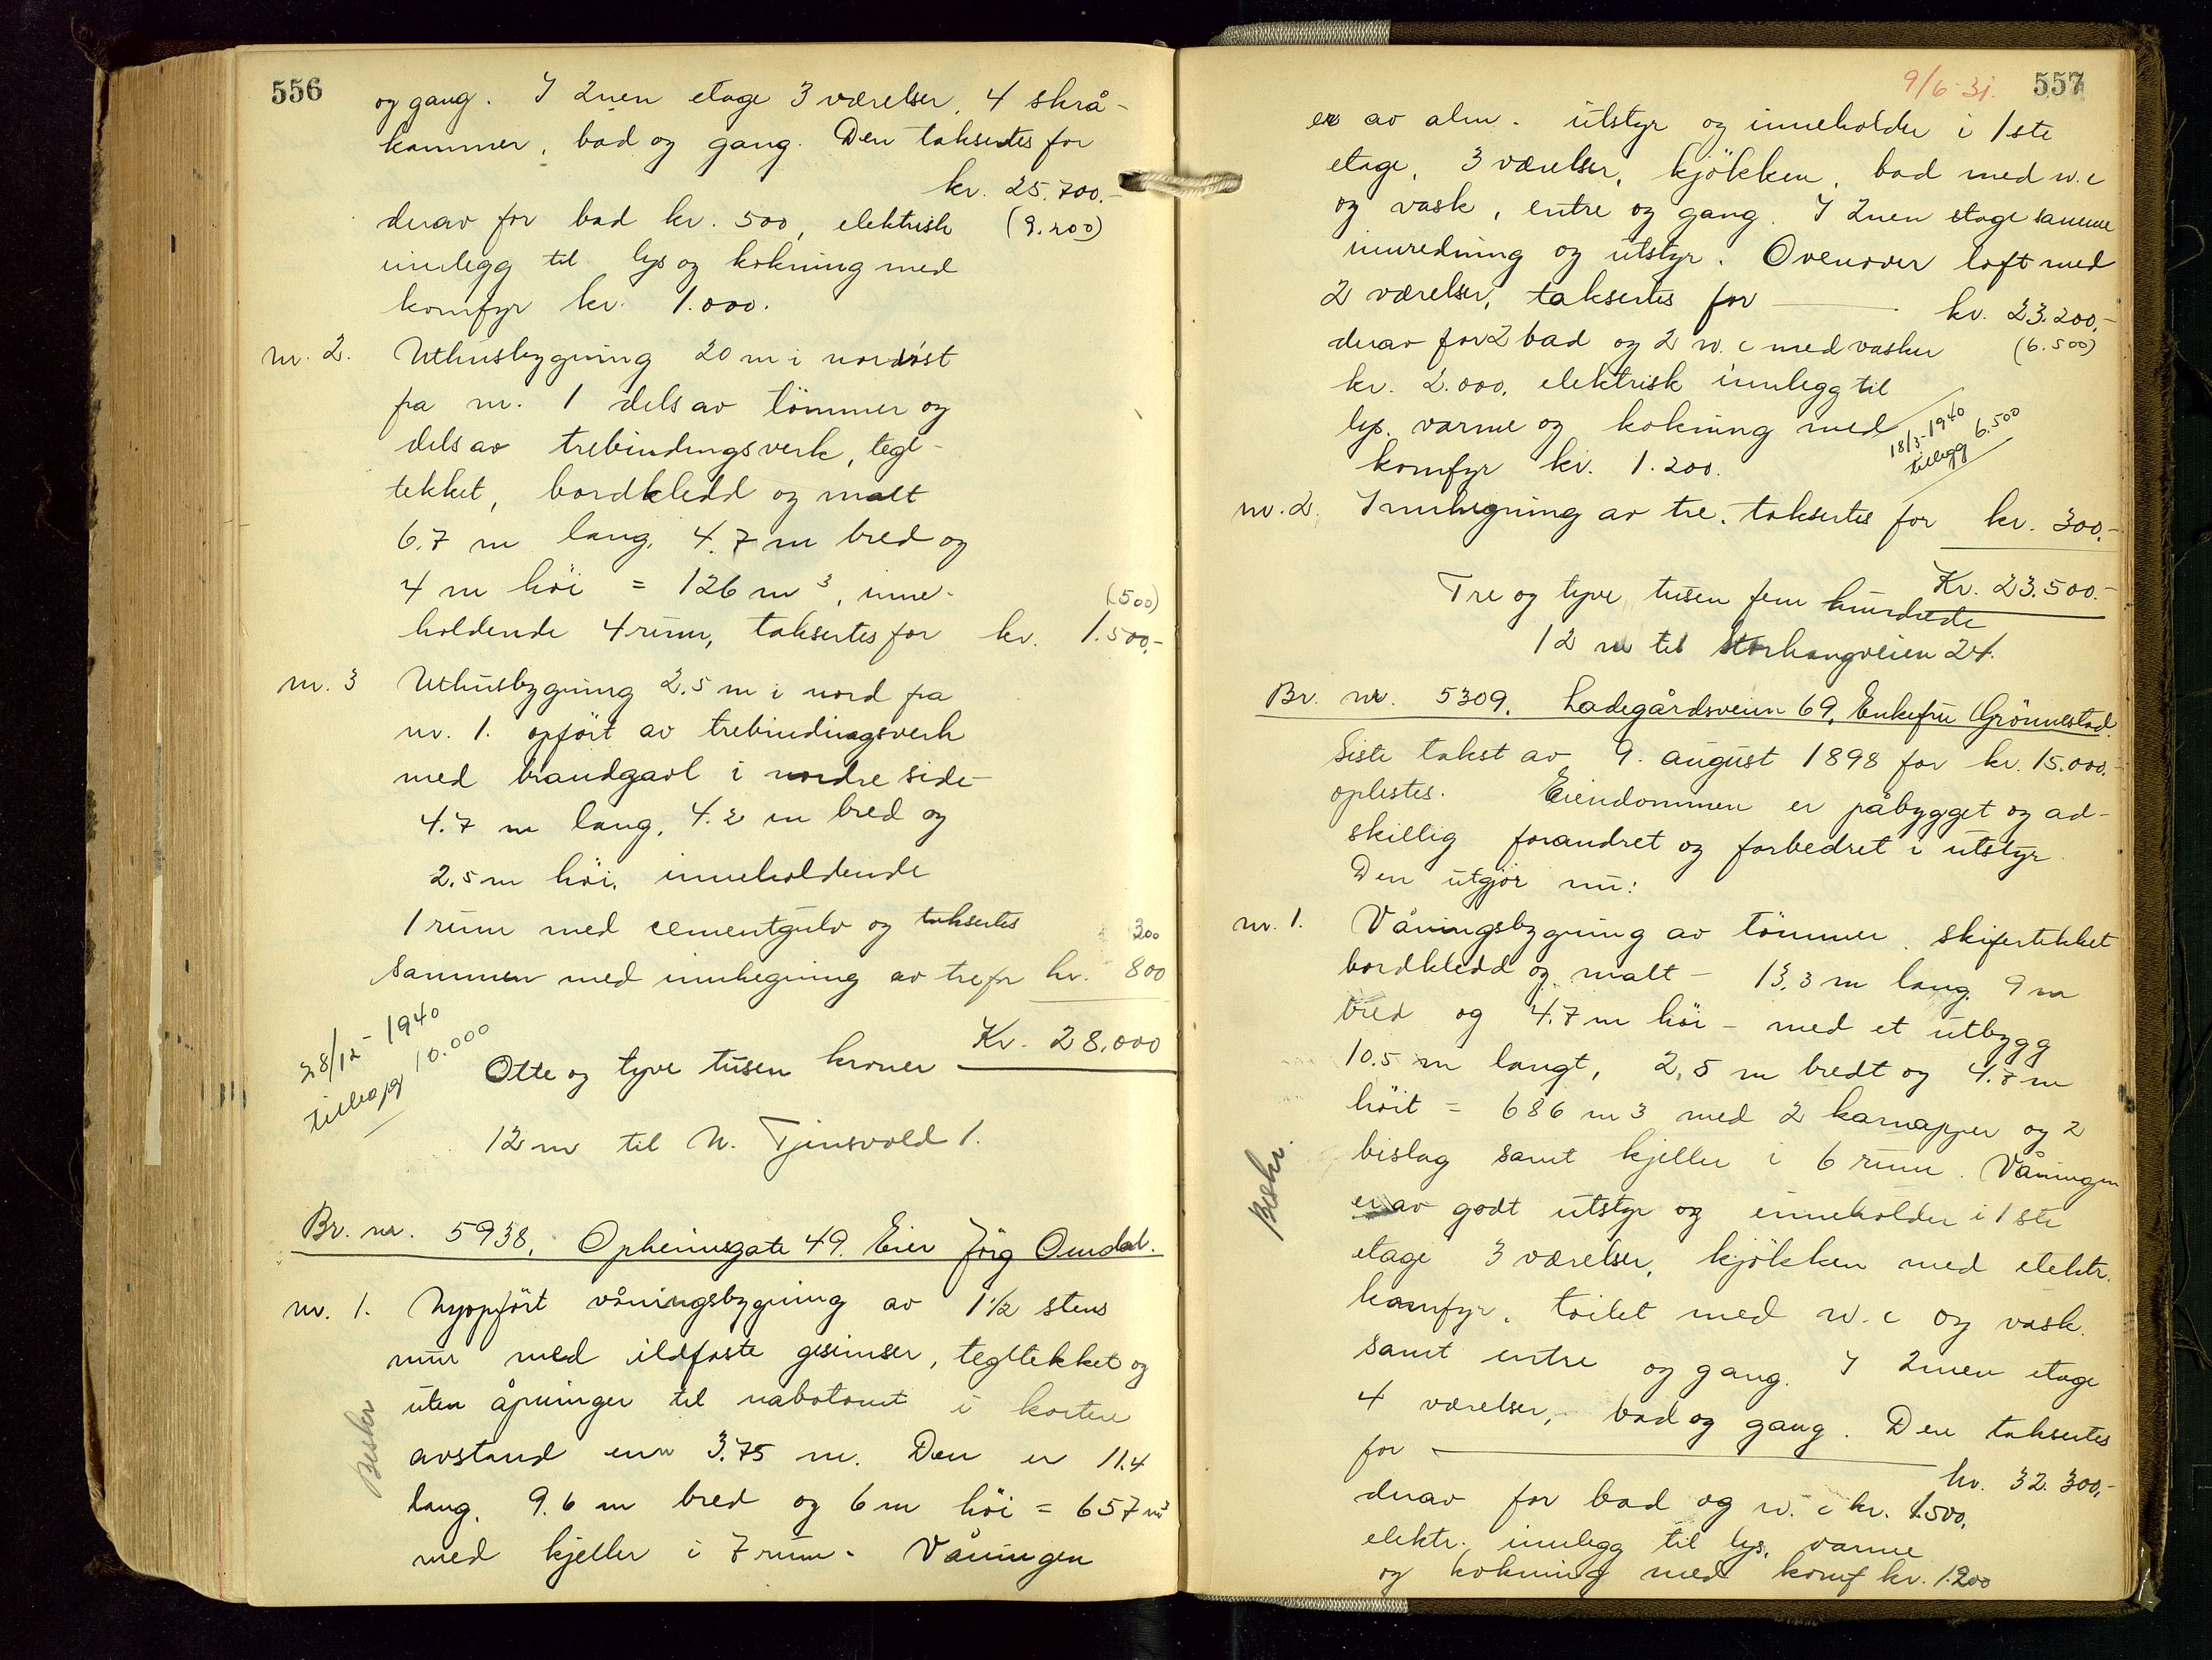 556
og gang. I 2nen etage 3 værelser, 4 skrå-
kammer, bad og gang. Den taksertes for
kr. 25.700.-
derav for bad kr. 500, elektrisk (9.200)
innlegg til lys og kokning med
komfyr kr. 1.000.
nr. 2. Uthusbygning 20 m i nordöst
fra nr. 1 dels av tömmer og
dels av trebindingsverk, tegl-
tekket, bordkledd og malt
6.7 m lang, 4.7 m bred og
4 m höi = 126 m³, inne- (500)
holdende 4 rum, taksertes for kr. 1.500.-
nr. 3 Uthusbygning 2.5 m i nord fra
nr. 1. opfört av trebindingsverk
med brandgavl i nordre side-
4.7 m lang, 4.2 m bred og
2.5 m höi, inneholdende
1 rum med cementgulv og taksertes 300
sammen med innhegning av tre for kr. 800
Kr. 28.000
28/12-1940
tillegg 10.000
Otte og tyve tusen kroner
12 m til N. Tjensvold 1.
Br. nr. 5938, Opheimsgate 49. Eier Jörg Omdal.
nr. 1. Nyopfört våningsbygning av 1 1/2 stens
mur med ildfaste gesimser, tegltekket og
uten åpninger til nabotomt i kortere
avstand enn 3.75 m. Den er 11.4
lang, 9.6 m bred og 6 m höi = 657 m³
med kjeller i 7 rum. Våningen
Beskr
9/6-31. 557
er av alm. utstyr og inneholder i 1ste
etage, 3 værelser, kjökken, bad med w.c
og vask, entre og gang. I 2nen etage samme
innredning og utstyr. Ovenover loft med
2 værelser, taksertes for kr. 23.200.-
derav for 2 bad og 2 w.c med vasker (6.500)
kr. 2.000, elektrisk innlegg til
lys, varme og kokning med
komfyr kr. 1.200.
18/3-1940
tillegg 6.500
nr. 2. Innhegning av tre, taksertes for kr. 300.-
Kr. 23.500.-
Tre og tyve tusen fem hundrede
12 m til Storhaugveien 24.
Br. nr. 5309. Ladegårdsveien 69, Enkefru Grönnestad.
Siste takst av 9. august 1898 for kr. 15.000.-
oplestes. Eiendommen er påbygget og ad-
skillig forandret og forbedret i utstyr.
Den utgjör nu:
nr. 1. Våningsbygning av tömmer, skifertekket
bordkledd og malt - 13,3 m lang, 9 m
bred og 4.7 m höi - med et utbygg
10.5 m langt, 2,5 m bredt og 4.7 m
höit = 686 m3 med 2 karnapper og 2
bislag samt kjeller i 6 rum. Våningen
er av godt utstyr og inneholder i 1ste
etage 3 værelser, kjökken med elektr.
komfyr, toilet med w.c og vask
samt entre og gang. I 2nen etage
4 værelser, bad og gang. Den taksertes
for kr. 32.300,-
derav for bad og w.c kr. 1.500,
elektr. innlegg til lys, varme
og kokning med komf kr. 1.200
Beskr.